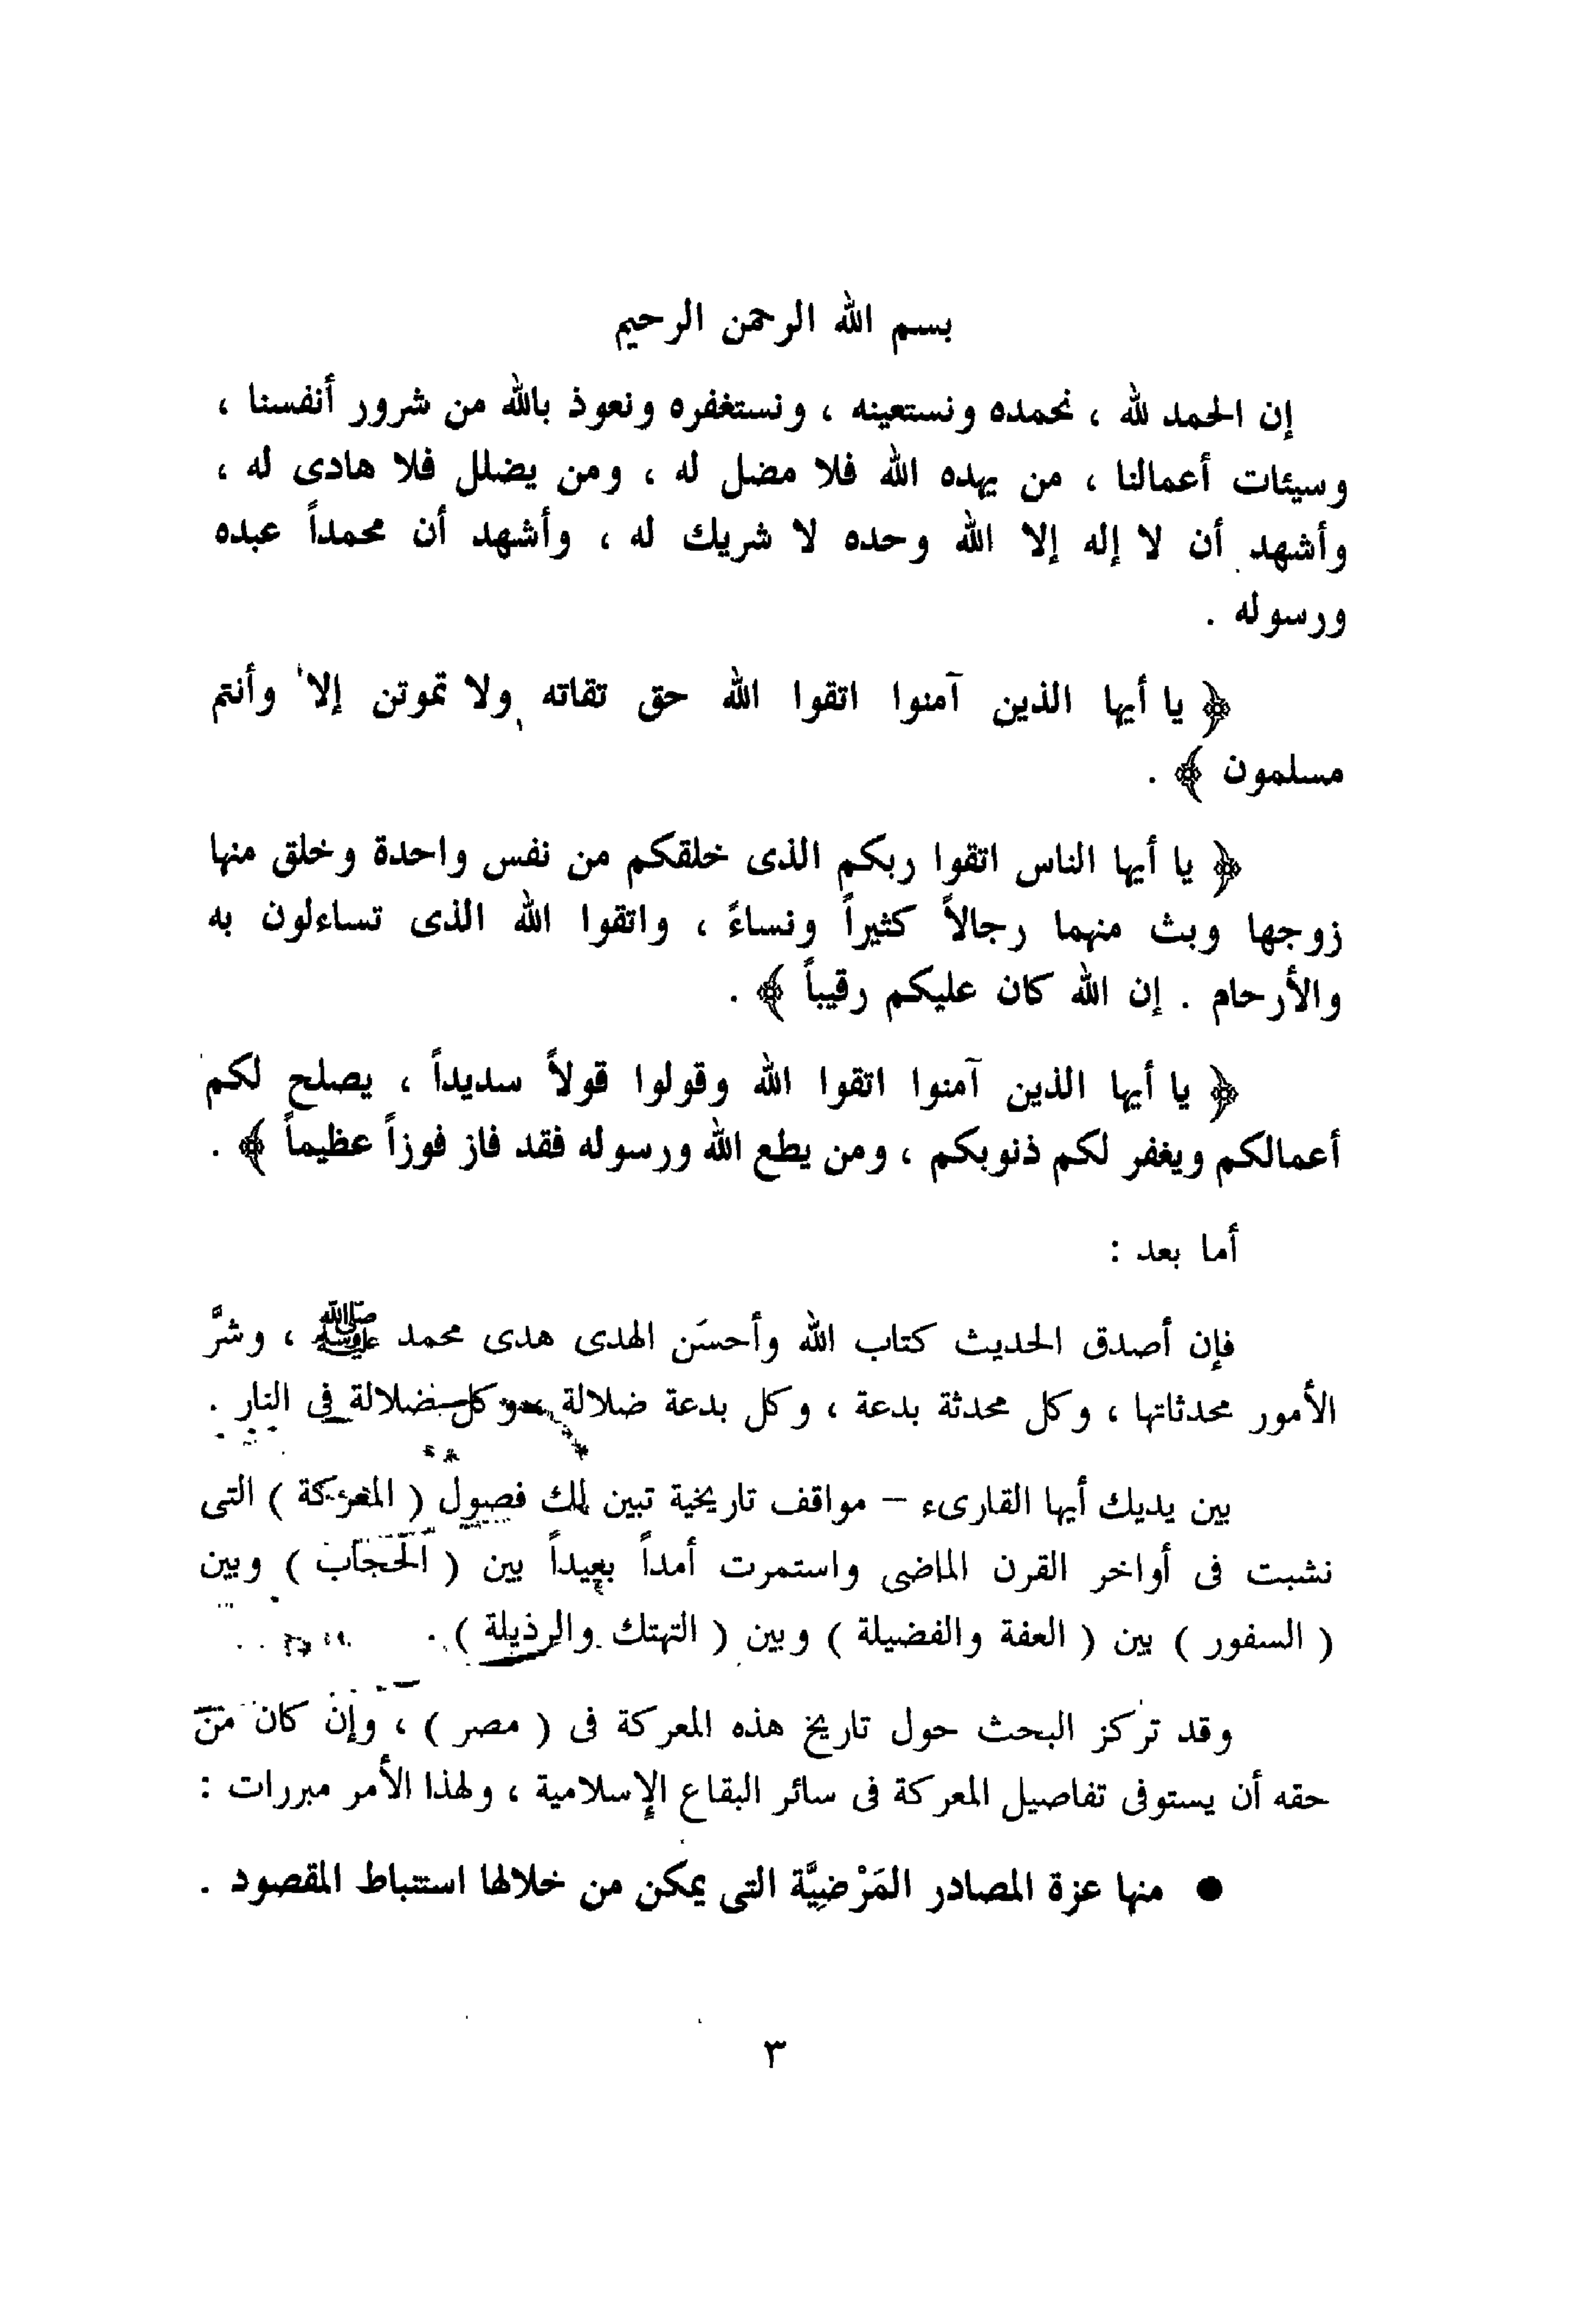 بسم الله الرحمن الرحيم
إن الحمد لله ، نحمده ونستعينه ، ونستغفره ونعوذ بالله من شرور أنفسنا ،
وسيئات أعمالنا ، من يهده الله فلا مضل له ، ومن يضلل فلا هادى له ،
وأشهد أن لا إله إلا الله وحده لا شريك له ، وأشهد أن محمداً عبده
ورسوله .
﴿ يا أيها الذين آمنوا اتقوا الله حق تقاته ولا تموتن إلا وأنتم
مسلمون ﴾ .
﴿ يا أيها الناس اتقوا ربكم الذى خلقكم من نفس واحدة وخلق منها
زوجها وبث منهما رجالاً كثيراً ونساءً ، واتقوا الله الذى تساءلون به
والأرحام . إن الله كان عليكم رقيباً ﴾ .
﴿ يا أيها الذين آمنوا اتقوا الله وقولوا قولاً سديداً ، يصلح لكم
أعمالكم ويغفر لكم ذنوبكم ، ومن يطع الله ورسوله فقد فاز فوزاً عظيماً ﴾ .
أما بعد :
فإن أصدق الحديث كتاب الله وأحسَن الهدى هدى محمد ﷺ ، وشرَّ
الأمور محدثاتها ، وكل محدثة بدعة ، وكل بدعة ضلالة ، وكل ضلالة فى النار .
بين يديك أيها القارىء – مواقف تاريخية تبين لك فصول ( المعركة ) التى
نشبت فى أواخر القرن الماضى واستمرت أمداً بعيداً بين ( الحجاب ) وبين
( السفور ) بين ( العفة والفضيلة ) وبين ( التهتك والرذيلة ) .
وقد تركز البحث حول تاريخ هذه المعركة فى ( مصر ) ، وإن كان من
حقه أن يستوفى تفاصيل المعركة فى سائر البقاع الإسلامية ، ولهذا الأمر مبررات :
● منها عزة المصادر المَرْضِيَّة التى يمكن من خلالها استنباط المقصود .
٣